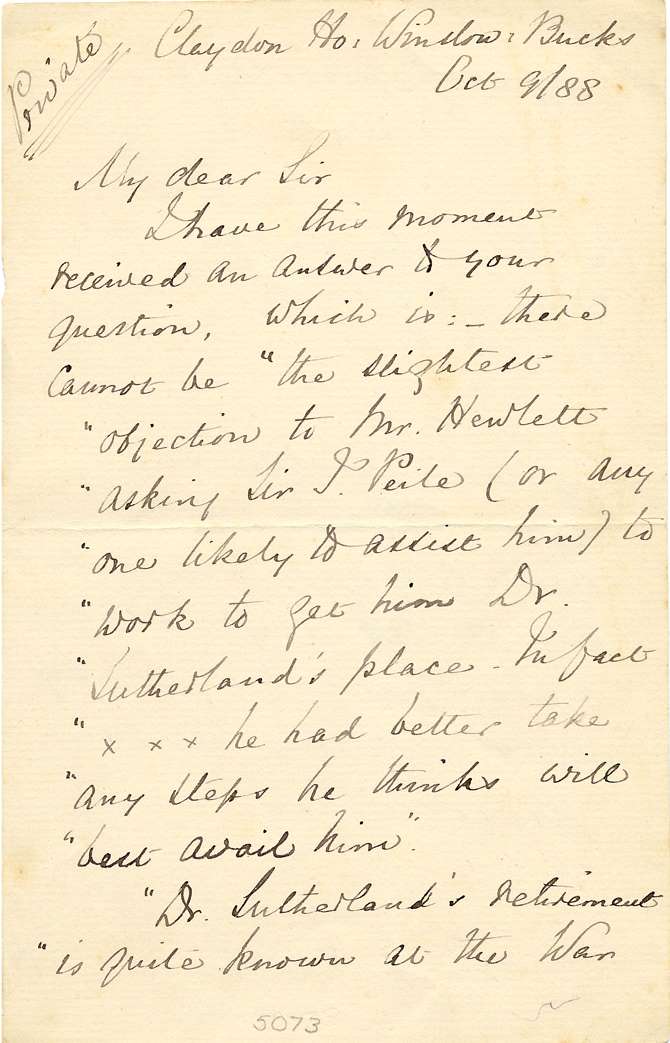 Private
Claydon Ho: Winslow: Bucks
Oct 9/88
My dear Sir
I have this moment
received an answer to your
question, which is: – there
cannot be "the slightest
"objection to Mr. Hewlett
"asking Sir J. Peile (or any
"one likely to assist him) to
"work to get him Dr.
"Sutherland's place – In fact
"x x x he had better take
"any steps he thinks will
"best avail him".
"Dr. Sutherland's retirement
"is quite known at the War
5073